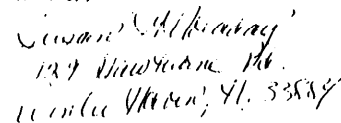 Susan
129 Hawthorne Rd.
Winter Haven, Fl. 33884